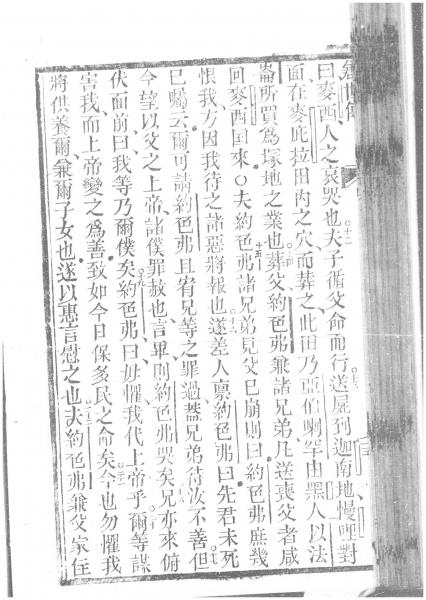 曰麥西人之哀哭也夫子循父命而行送屍到迦南地幔哩對
面在麥庇拉田内之穴而葬之此田乃亞伯喇罕由黑人以法
崙所買爲塚地之業也葬父約色弗兼諸兄弟凡送喪父者咸
回麥西国來○夫約色弗諸兄弟見父已崩則曰約色弗庶幾
恨我方因我待之諸惡將報也遂差人禀約色弗曰先君未死
已囑云爾可請約色弗且宥兄等之罪過蓋兄弟待汝不善但
今望以父之上帝諸僕罪赦也言畢則約色弗哭矣兄亦來俯
伏面前曰我等乃爾僕矣約色弗曰毋懼我代上帝乎爾等謀
害我而上帝變之爲善致如今日保多民之命矣今也勿懼我
將供養爾兼爾子女也遂以惠言慰之也夫約色弗兼父家住